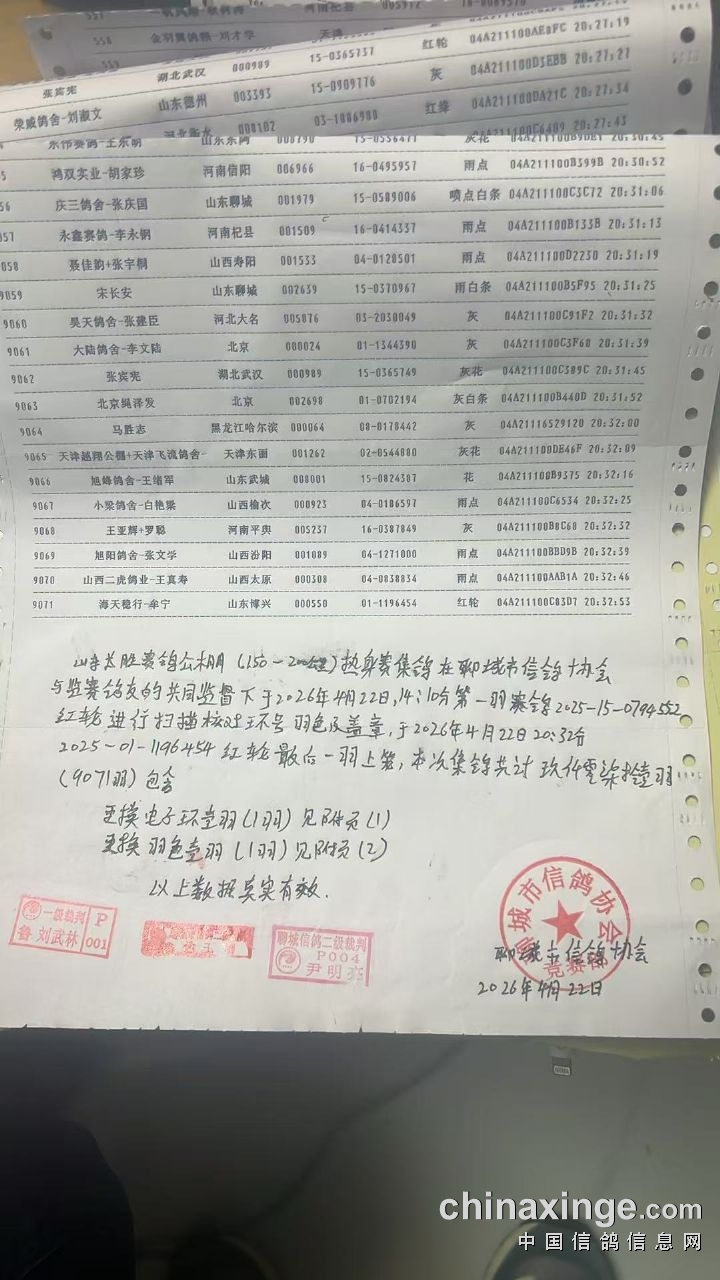 558 金羽翼鸽棚-刘才学 天津
559
张宾宪 湖北武汉 000989 15-0365737 红轮 04A211100AE8FC 20:27:19
荣威鸽舍-刘淑文 山东德州 003393 15-0909776 灰 04A211100D3EBB 20:27:27
河北衡水 008102 03-1086980 红绛 04A211100DA21C 20:27:34
04A211100C6409 20:27:43
东伟赛鸽-王东明 山东东阿 15-0556471 灰花 20:30:45
5 鸿双实业-胡家珍 河南信阳 006966 16-0495957 雨点 04A211100B399B 20:30:52
56 庆三鸽舍-张庆国 山东聊城 001979 15-0589006 喷点白条 04A211100C3C72 20:31:06
057 永鑫赛鸽-李永钢 河南杞县 001509 16-0414337 雨点 04A211100B133B 20:31:13
058 聂佳韵+张宇桐 山西寿阳 001533 04-0128501 雨点 04A211100D2230 20:31:19
9059 宋长安 山东聊城 002639 15-0370967 雨白条 04A211100B5F95 20:31:25
9060 昊天鸽舍-张建臣 河北大名 005076 03-2030049 灰 04A211100C91F2 20:31:32
9061 大陆鸽舍-李文陆 北京 000024 01-1344390 灰 04A211100C3F60 20:31:39
9062 张宾宪 湖北武汉 000989 15-0365749 灰花 04A211100C389C 20:31:45
9063 北京绳泽发 北京 002698 01-0702194 灰白条 04A211100B440D 20:31:52
9064 马胜志 黑龙江哈尔滨 000064 08-0178442 灰 04A21116529120 20:32:00
9065 天津越翔公棚+天津飞流鸽舍- 天津东面 001262 02-0544880 灰花 04A211100DE46F 20:32:09
9066 旭峰鸽舍-王绪军 山东武城 008001 15-0824387 花 04A211100B9375 20:32:16
9067 小梁鸽舍-白艳梁 山西榆次 000923 04-0186597 雨点 04A211100C6534 20:32:25
9068 王亚辉+罗聪 河南平舆 005237 16-0387849 灰 04A211100B8C60 20:32:32
9069 旭阳鸽舍-张文学 山西汾阳 001089 04-1271000 雨点 04A211100BBD9B 20:32:39
9070 山西二虎鸽业-王真寿 山西太原 000308 04-0838834 雨点 04A211100AAB1A 20:32:46
9071 海天稳行-牟宁 山东博兴 000550 01-1196454 红轮 04A211100C83D7 20:32:53
山东太胜赛鸽公棚(150-200公里)热身赛集鸽在聊城市信鸽协会
与监赛鸽友的共同监督下于2026年4月22日,14:10分第一羽赛鸽2025-15-0794552
红轮进行扫描核对环号羽色及盖章,于2026年4月22日20:32分
2025-01-1196454红轮最后一羽上笼,本次集鸽共计玖仟零柒拾壹羽
(9071羽)包含
更换电子环壹羽(1羽)见附页(1)
更换羽色壹羽(1羽)见附页(2)
以上数据真实有效.
一级裁判 P
鲁 刘武林 001
聊城信鸽二级裁判
P004
尹明亮
聊城市信鸽协会
竞赛部
聊城市信鸽协会
2026年4月22日
chinaxinge.com
中国信鸽信息网